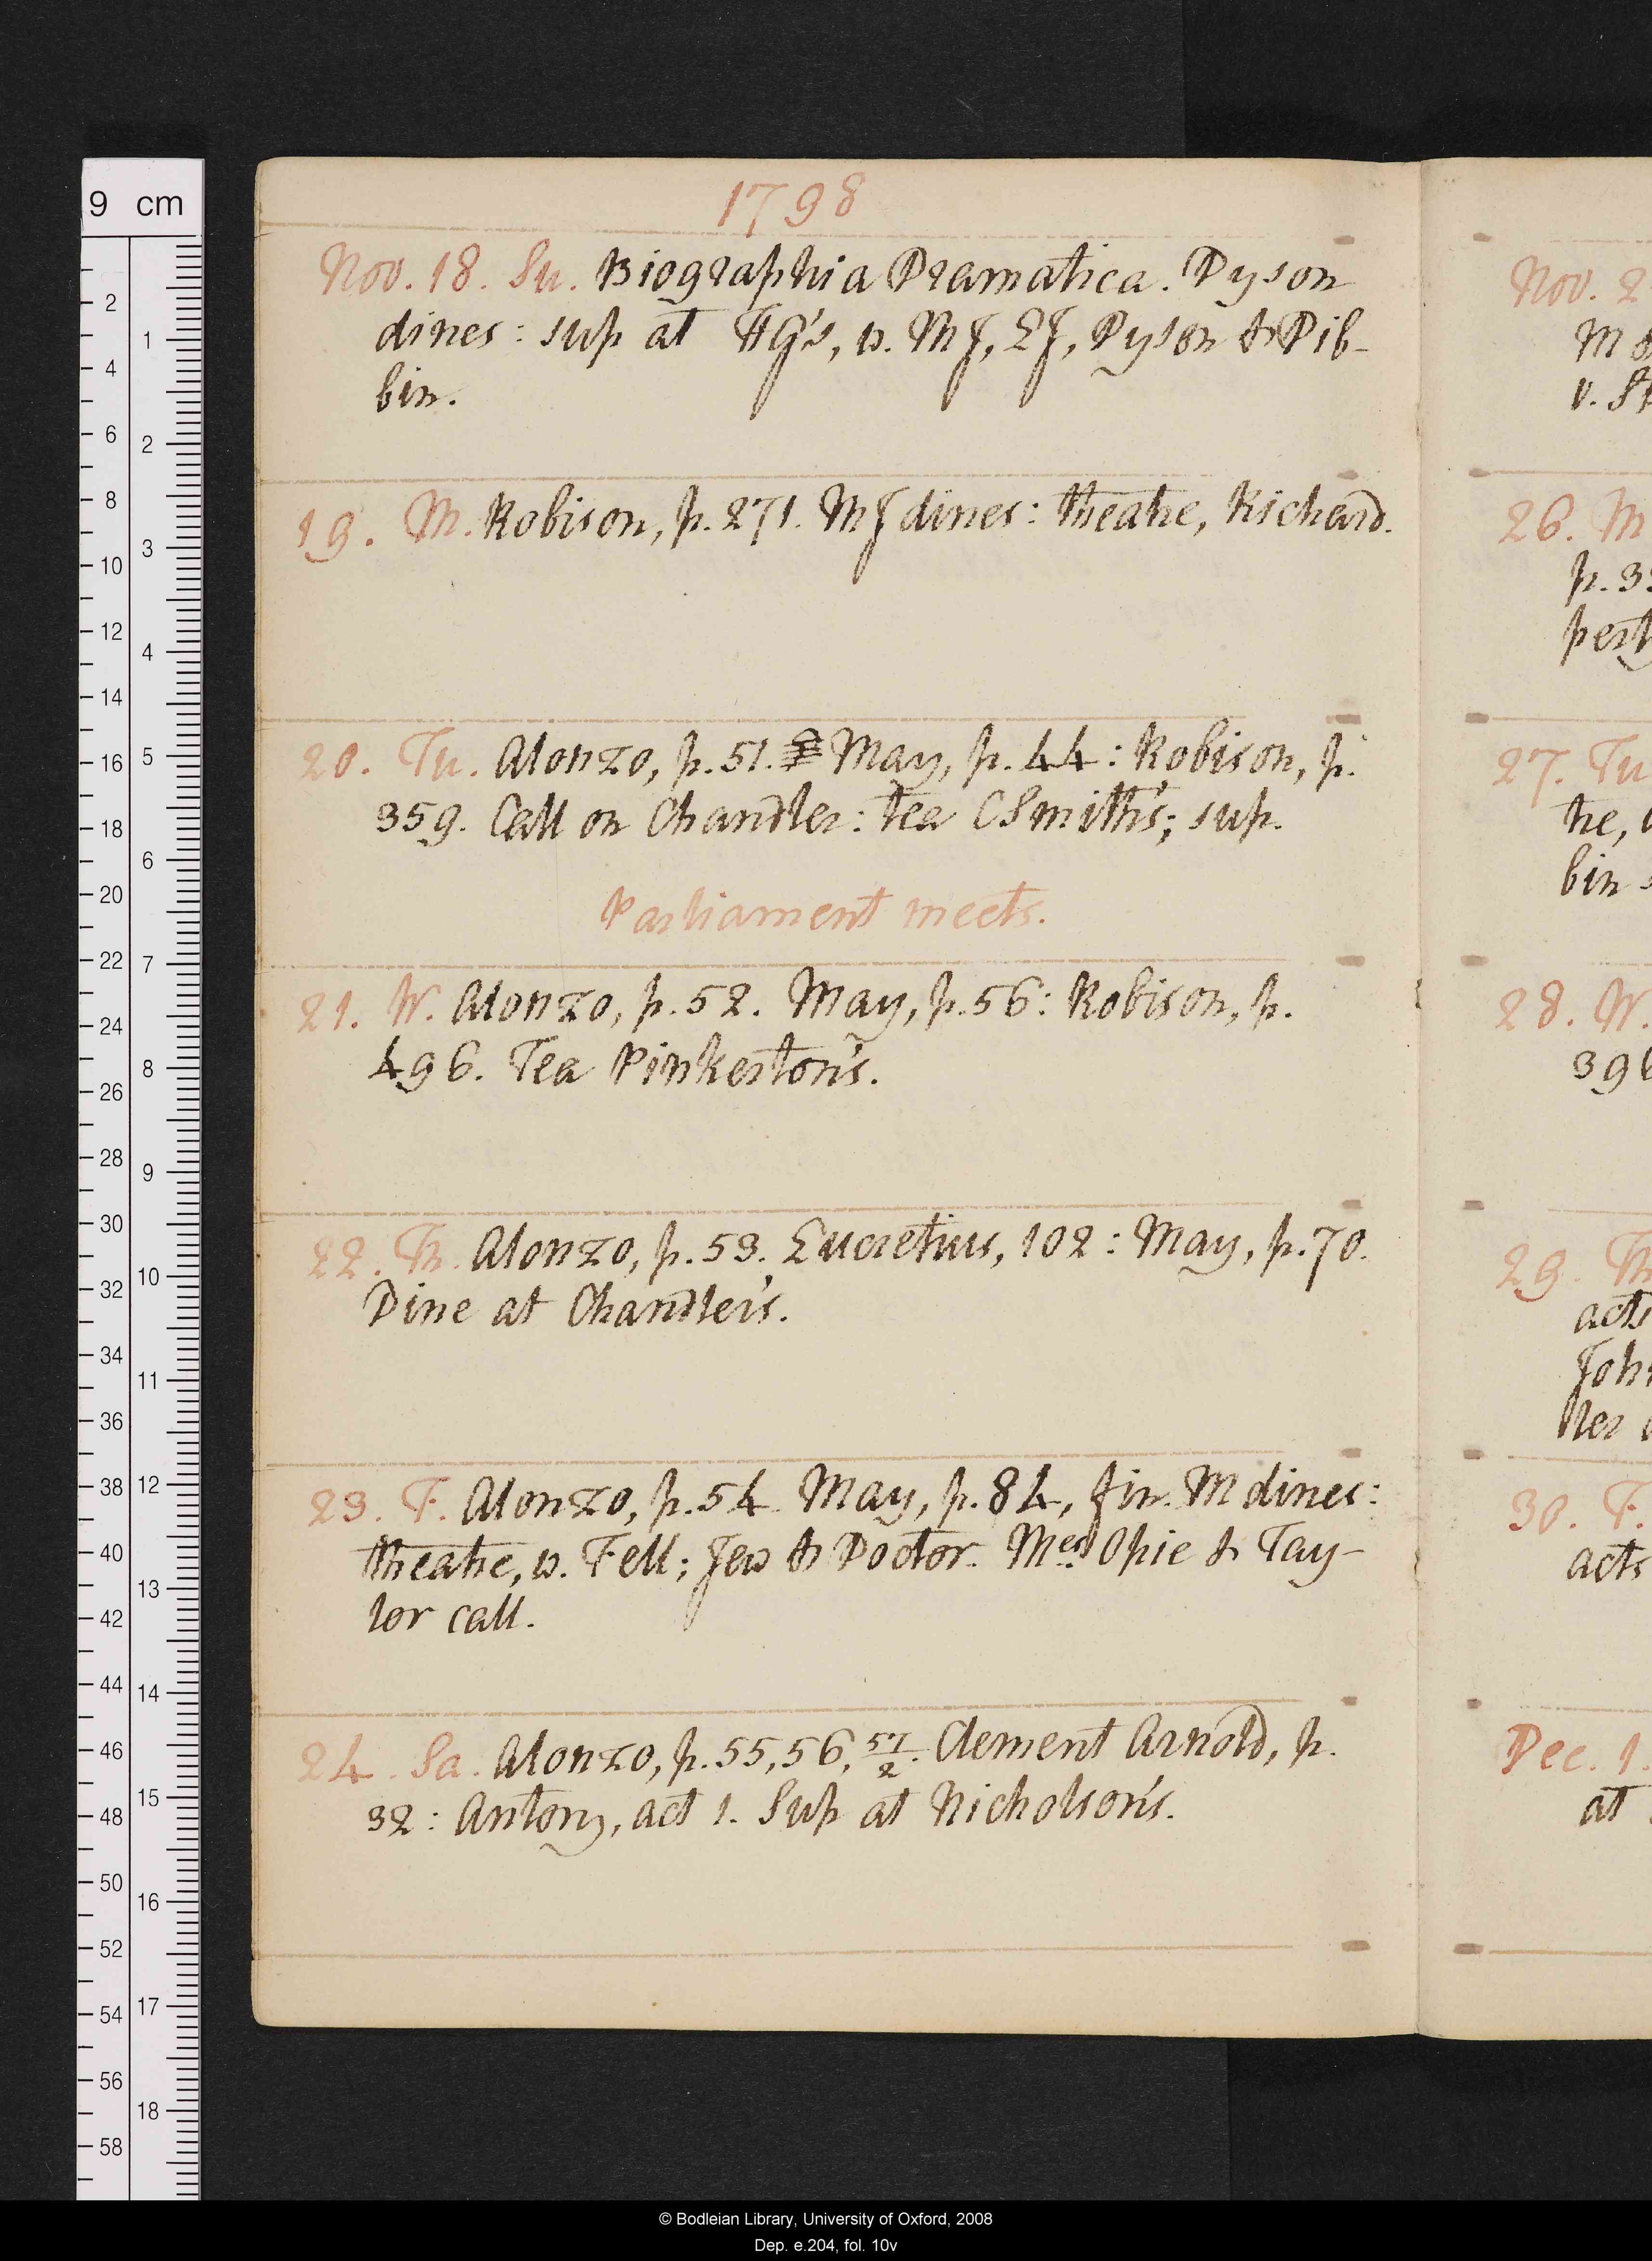 1798
Nov. 18. Su. Biographia Dramatica. Dyson
dines: sup at HG's, w. MJ, LJ, Dyson & Dib-
bin.
19. M. Robison, p. 271. MJ dines: theatre, Richard.
20. Tu. Alonzo, p. 51. May, p. 44: Robison, p.
359. Call on Chandler: tea CSmith's; sup.
Parliament meets.
21. W. Alonzo, p. 52. May, p. 56: Robison, p.
496. Tea Pinkerton's.
22. Th. Alonzo, p. 53. Lucretius, 102: May, p. 70.
Dine at Chandler's.
23. F. Alonzo, p. 54. May, p. 84, fin. M dines:
theatre, w. Fell; Jew & Doctor. Mes Opie & Tay-
lor call.
24. Sa. Alonzo, p. 55, 56, 57/2. Clement Arnold, p.
32: Antony, act 1. Sup at Nicholson's.
Nov. 2
M
v. St
26. M
p. 3
pert
27. Tu
tre,
bin
28. W.
396
29. Th
acts
Joh
ller
30. F.
acts
Dec. 1.
at
9 cm
2
4
6
8
10
12
14
16
18
20
22
24
26
28
30
32
34
36
38
40
42
44
46
48
50
52
54
56
58
1
2
3
4
5
6
7
8
9
10
11
12
13
14
15
16
17
18
© Bodleian Library, University of Oxford, 2008
Dep. e.204, fol. 10v